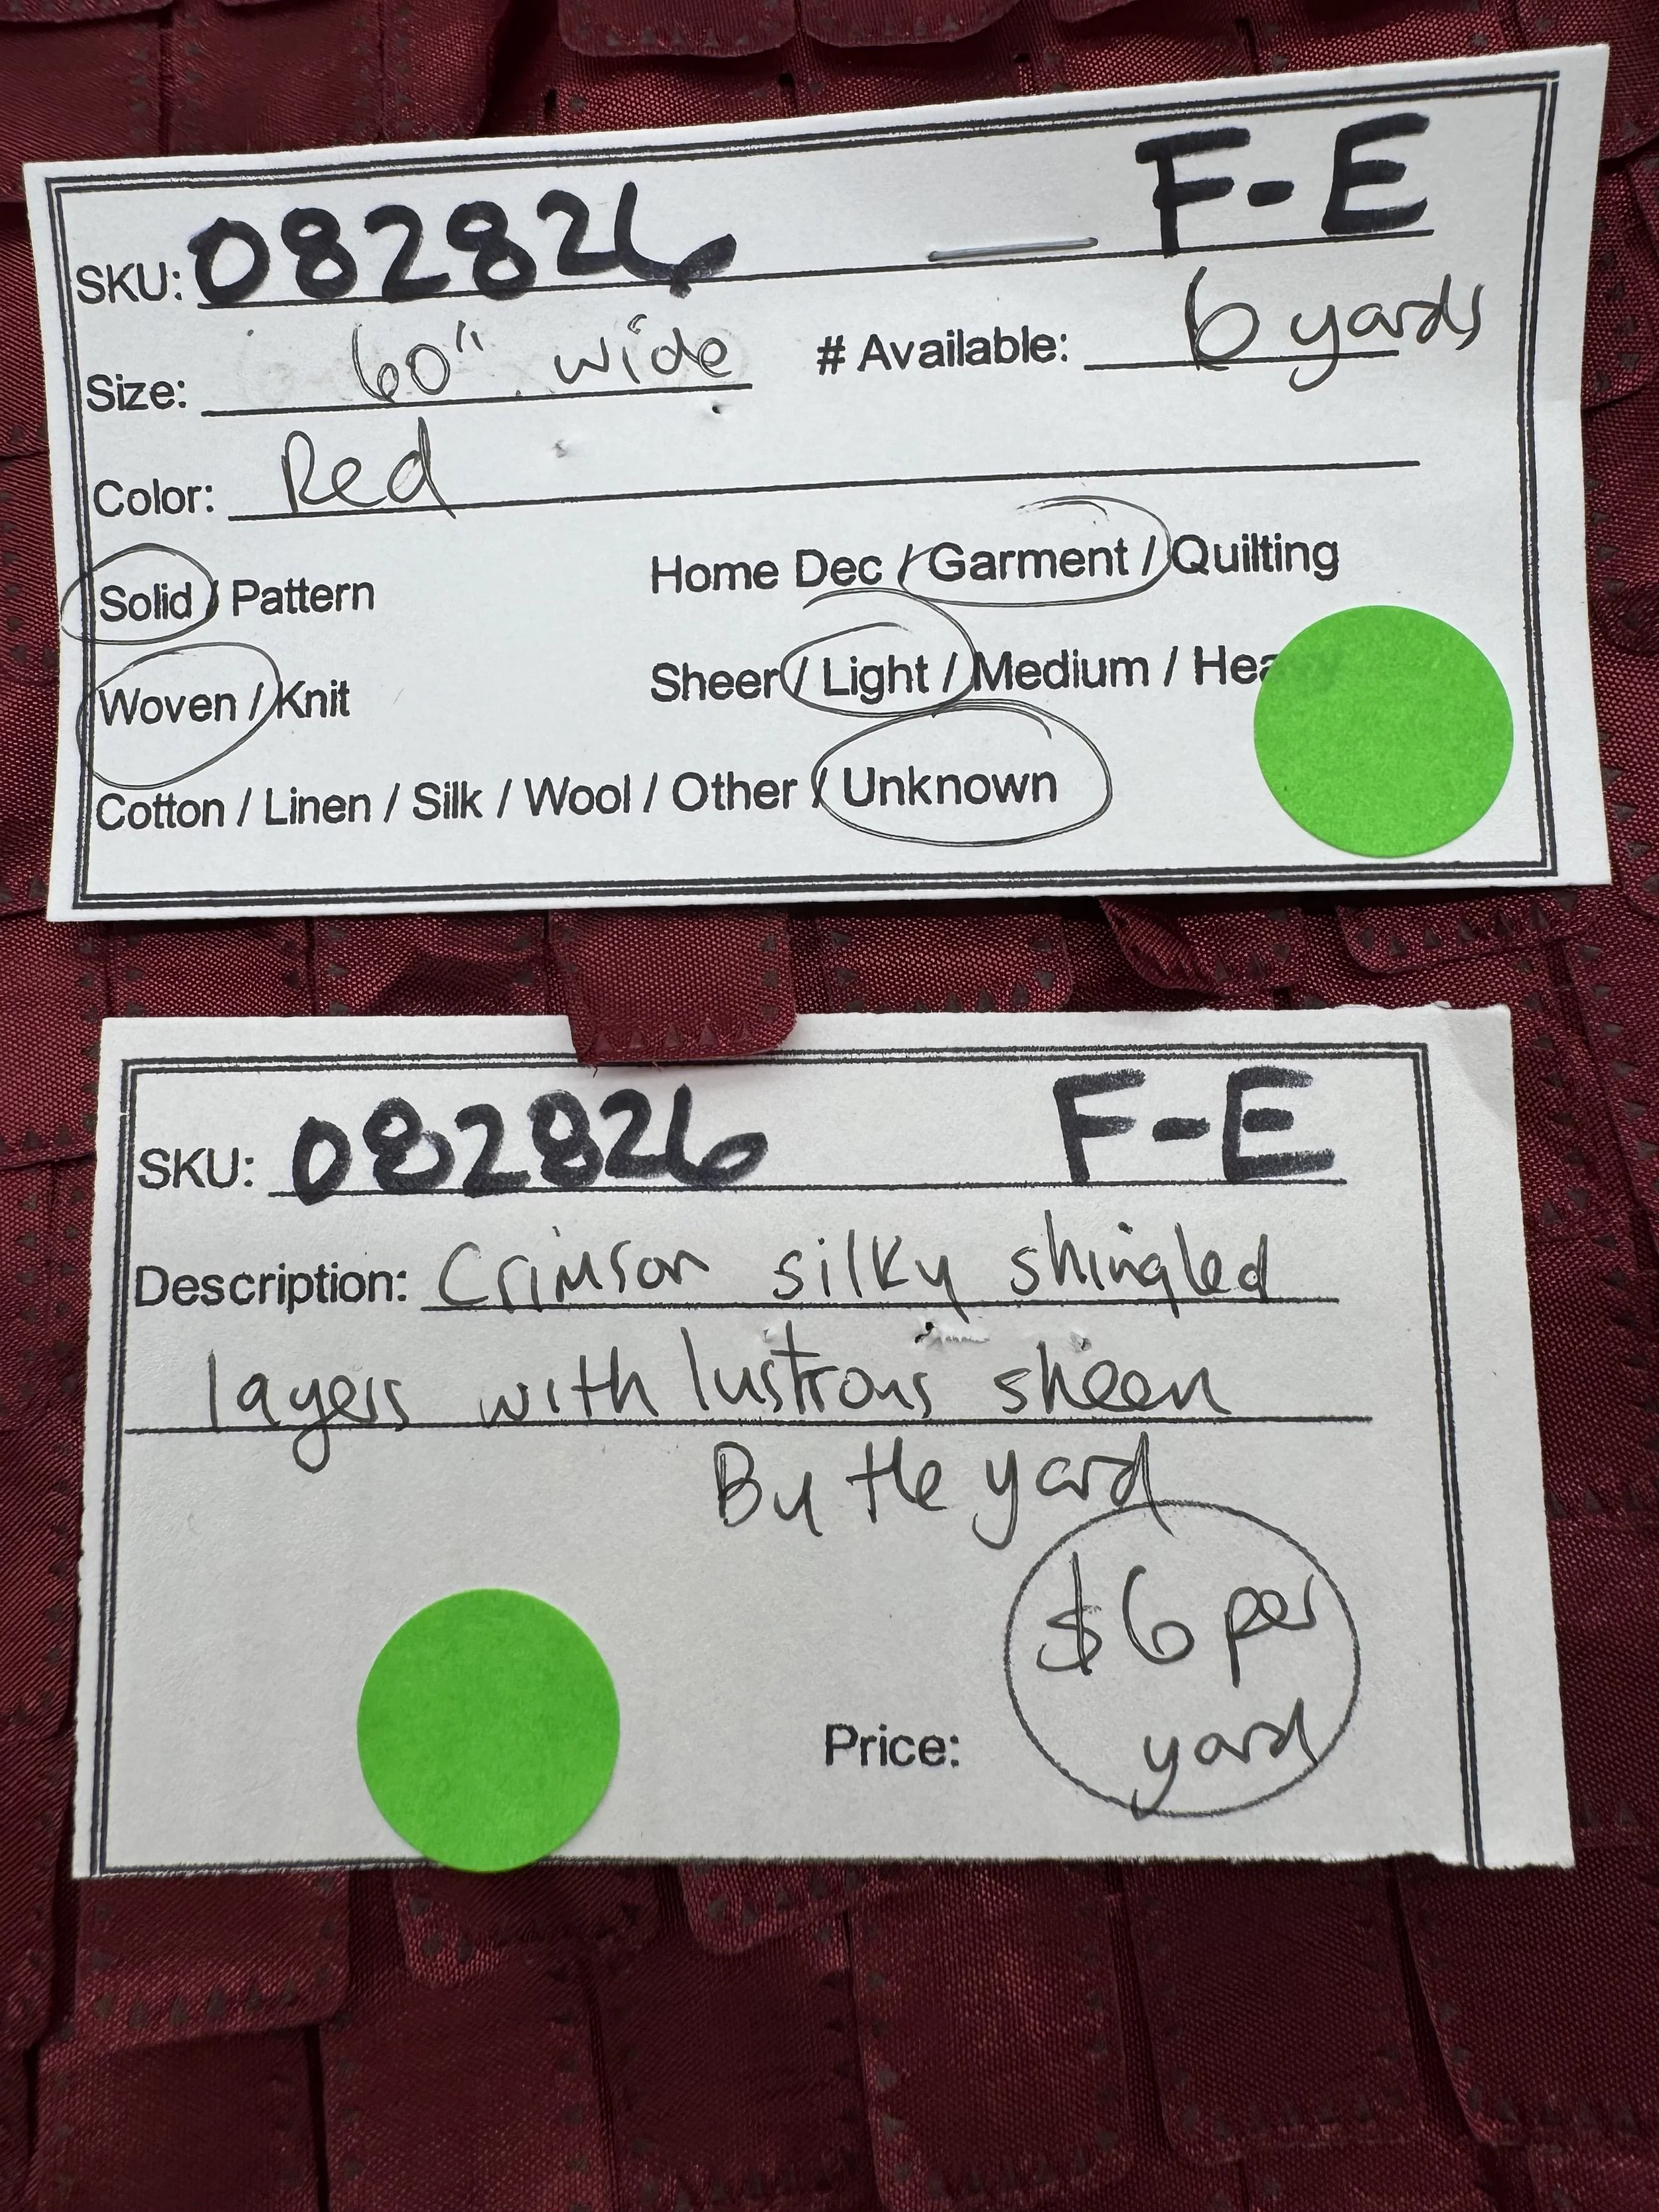 SKU: 082826 F-E
Size: 60" wide # Available: 6 yards
Color: Red
Solid / Pattern Home Dec / Garment / Quilting
Woven / Knit Sheer / Light / Medium / Hea
Cotton / Linen / Silk / Wool / Other / Unknown
SKU: 082826 F-E
Description: Crimson silky shingled
layers with lustrous sheen
By the yard
$6 per
Price: yard